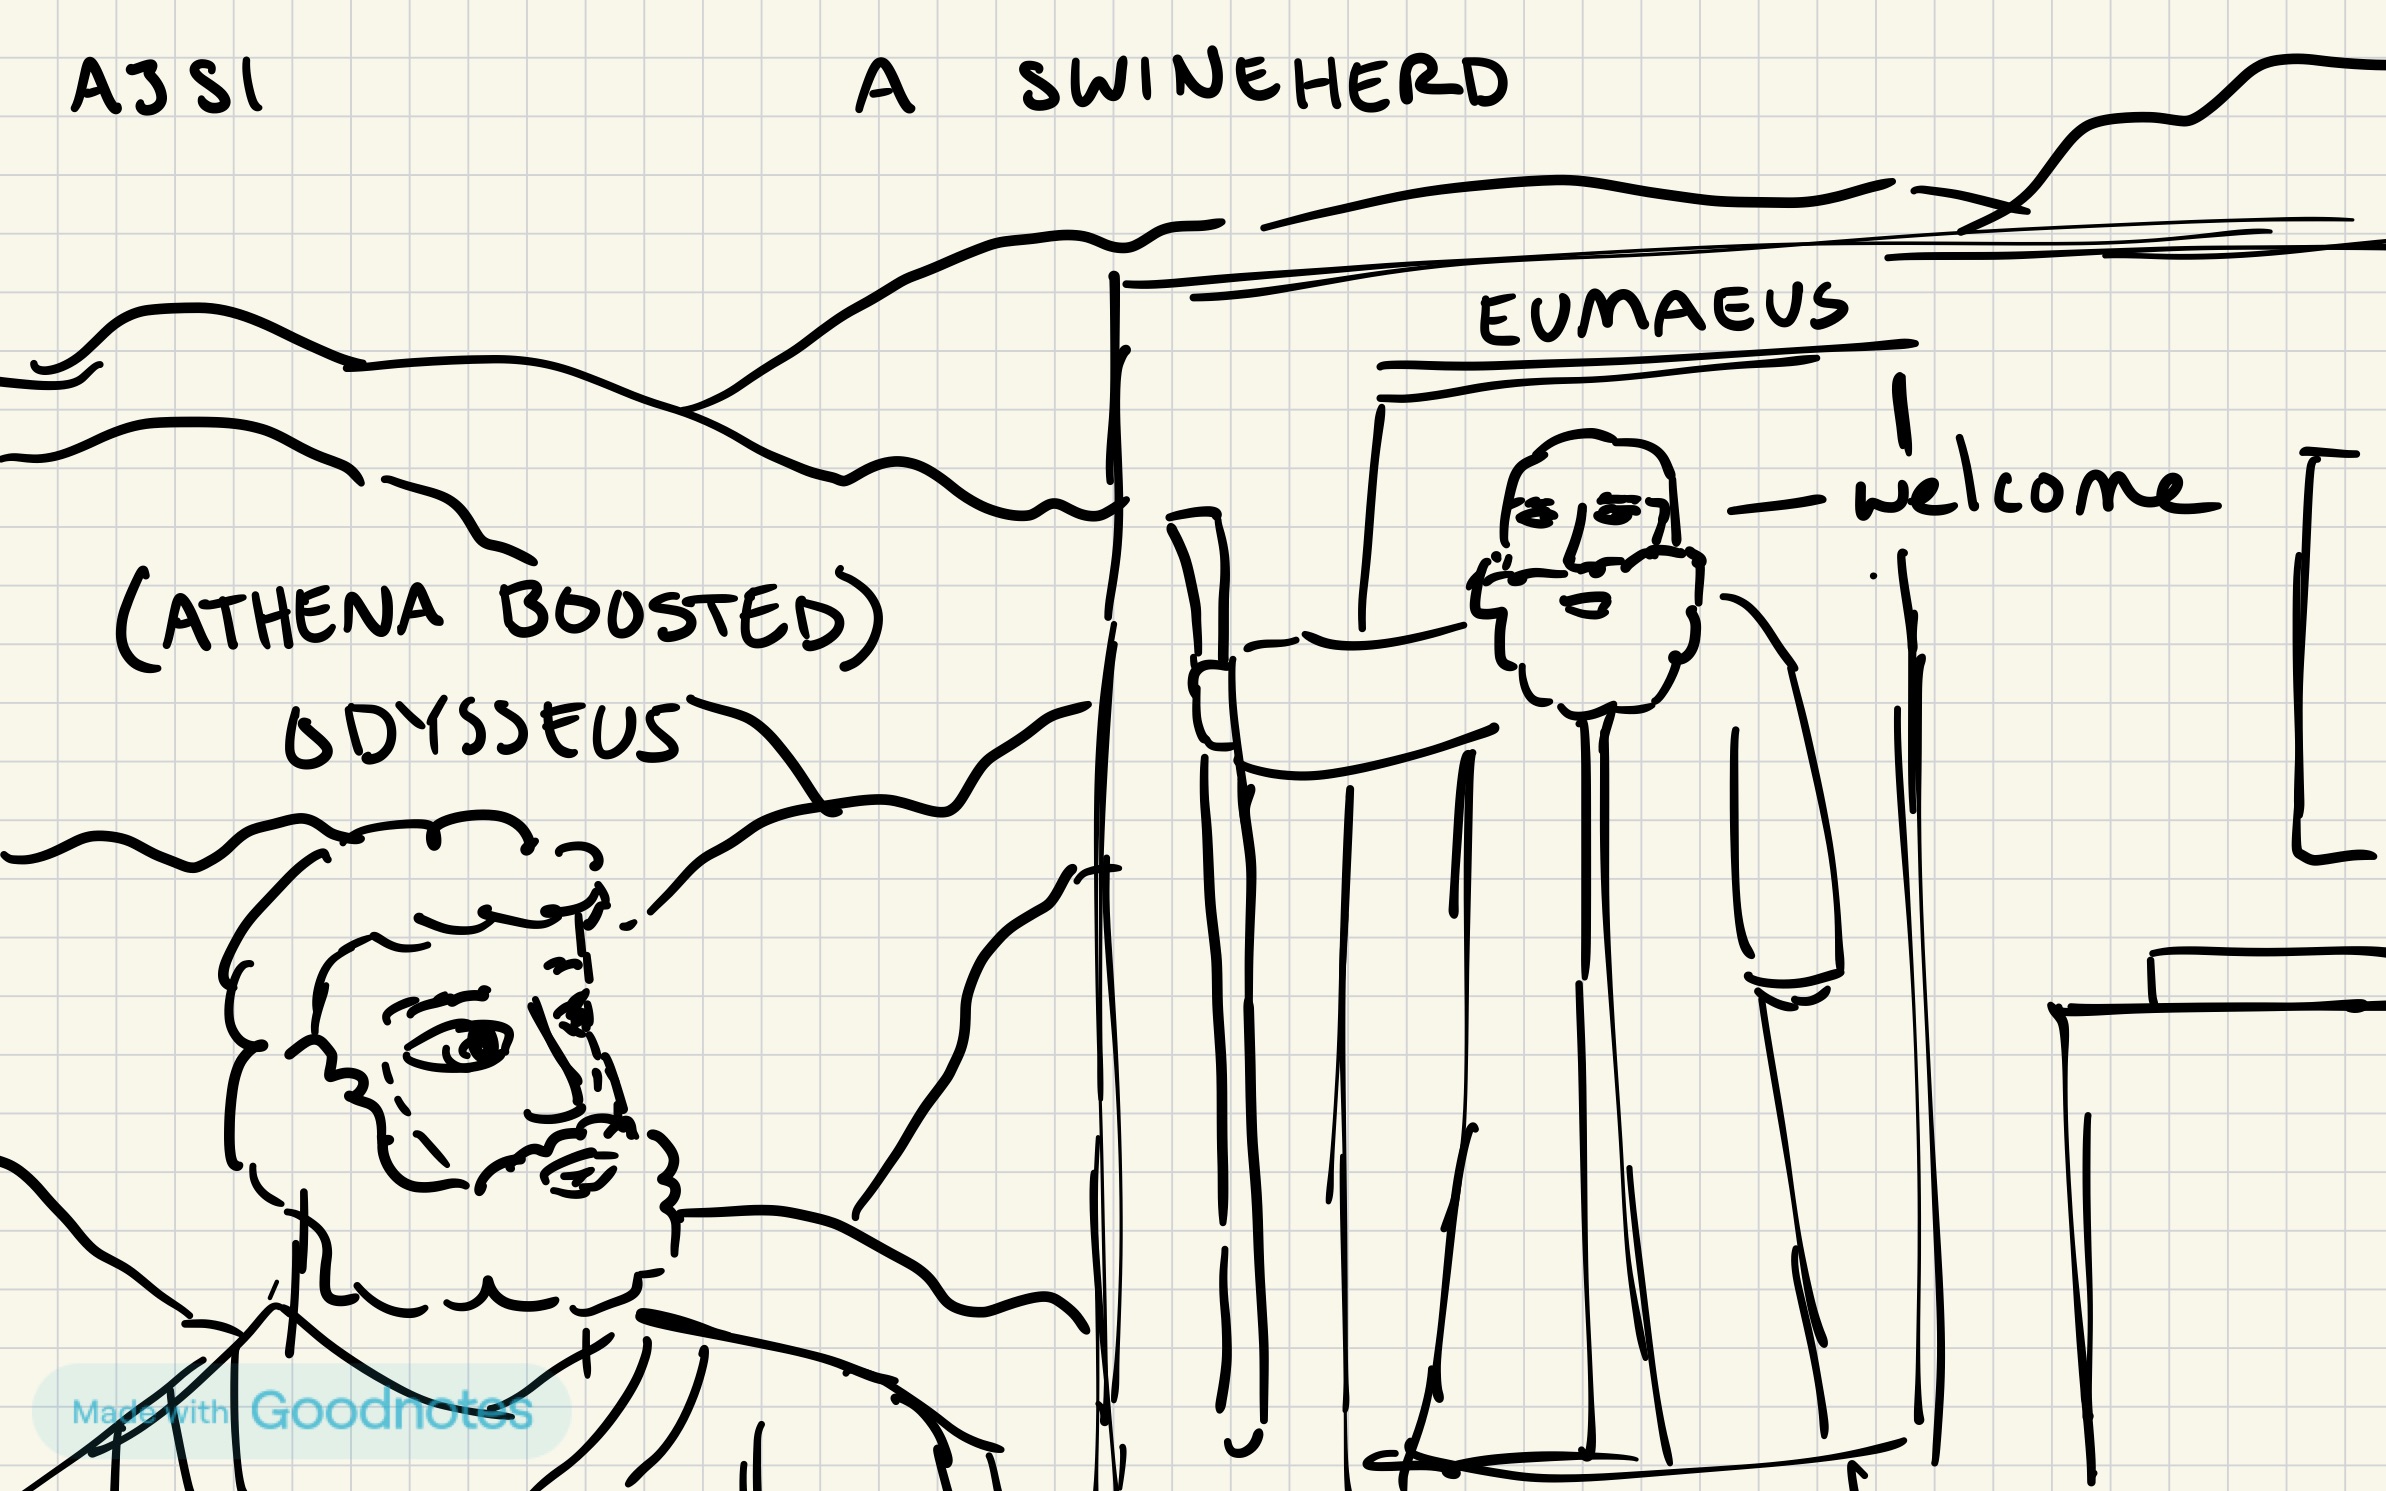 AJSI
A SWINEHERD
EUMAEUS
— welcome
(ATHENA BOOSTED)
ODYSSEUS
Made with Goodnotes